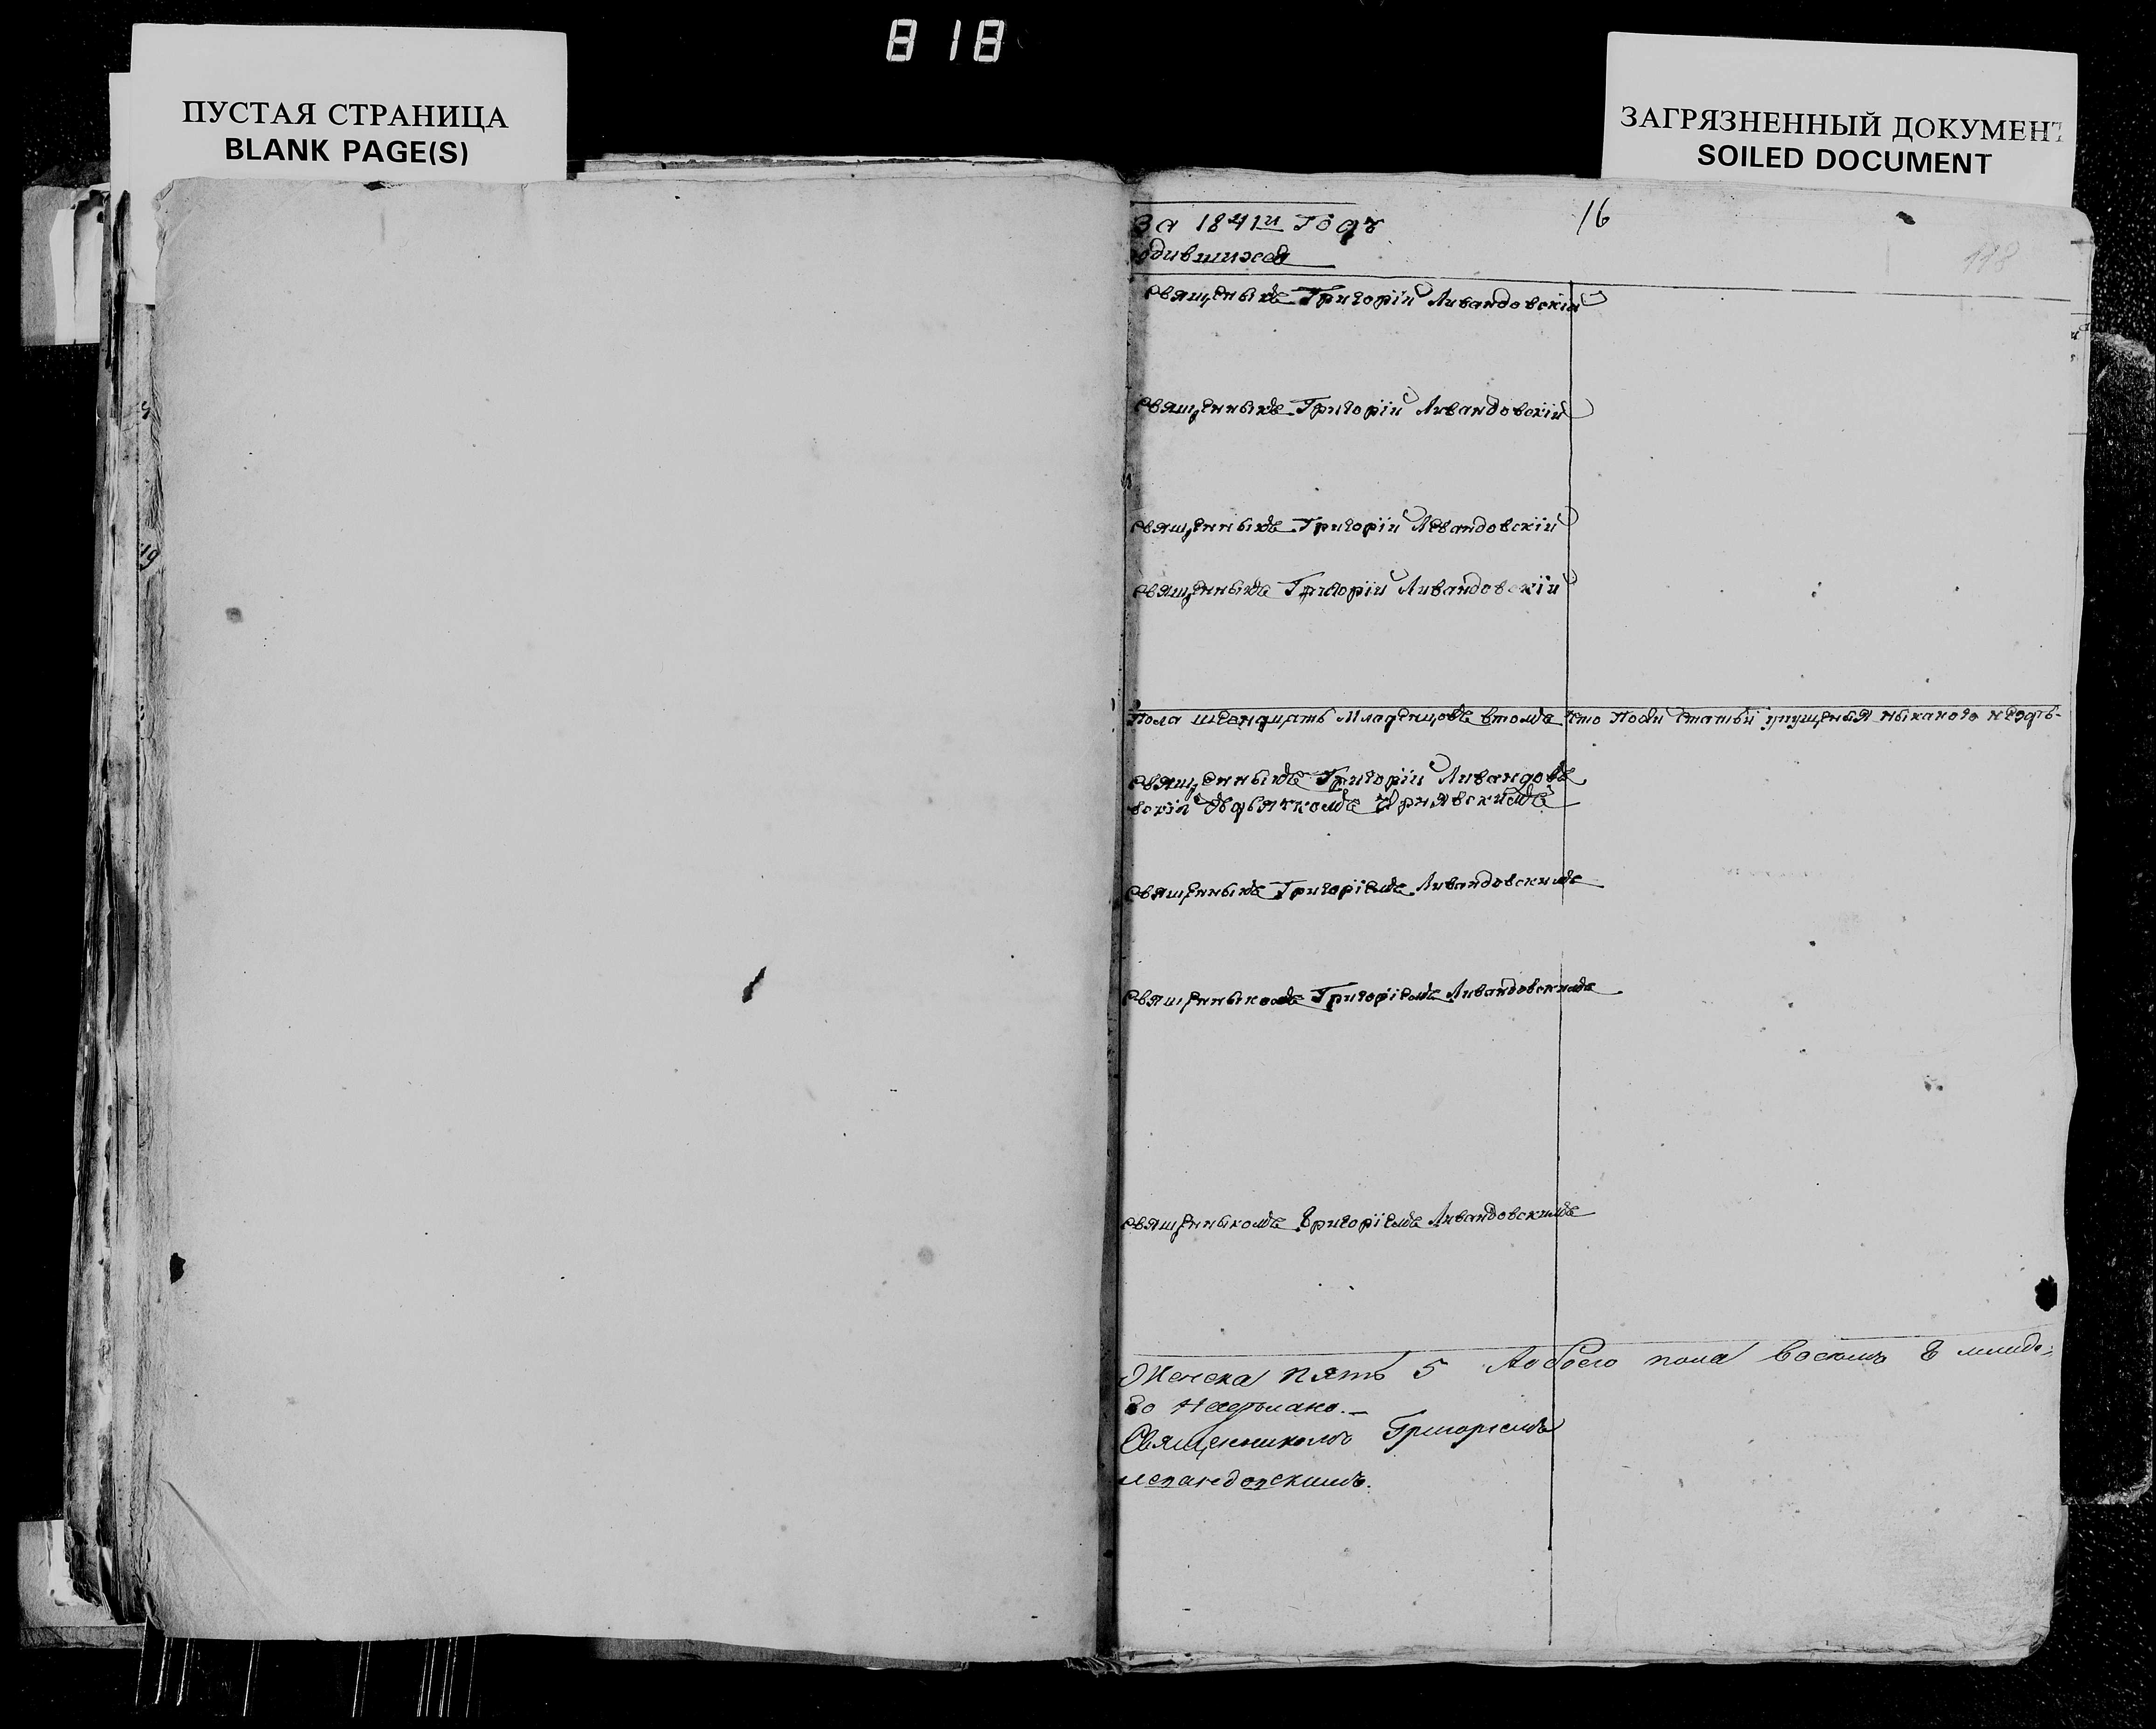 818
ПУСТАЯ СТРАНИЦА
BLANK PAGE(S)
ЗАГРЯЗНЕННЫЙ ДОКУМЕНТ
SOILED DOCUMENT
За 1841й Годъ
16
118
одившихся
Священыкъ Григорій Ливандовскій
Священныкъ Григорій Ливандовскій
Священныкъ Григорій Левандовскій
Священныкъ Григорій Ливандовскій
Пола шеснацать Младенцовъ втомъ что Посій статьи упущеныя ныкакого нездѣ-
Священныкъ Григорій Ливандовъ
вскій
Священыкъ Григоріемъ Ливандовскимъ
Священныкомъ Григоріемъ Ливандовскимъ
Священныкомъ Григоріемъ Ливандовскимъ
Женска пять 5 Аобоего пола восемь 8 младе-
го несдѣлано.
Священникомъ Григоріемъ
левандовскимъ.